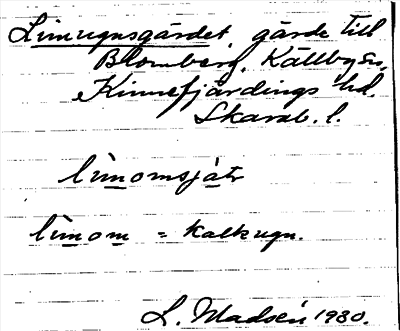 Limugnsgärdet, gärde till
Blomberg, Källby sn,
Kinnefjärdings hd,
Skarab. l.
limomsjatr
limom = kalkugn.
L. Madsén 1930.